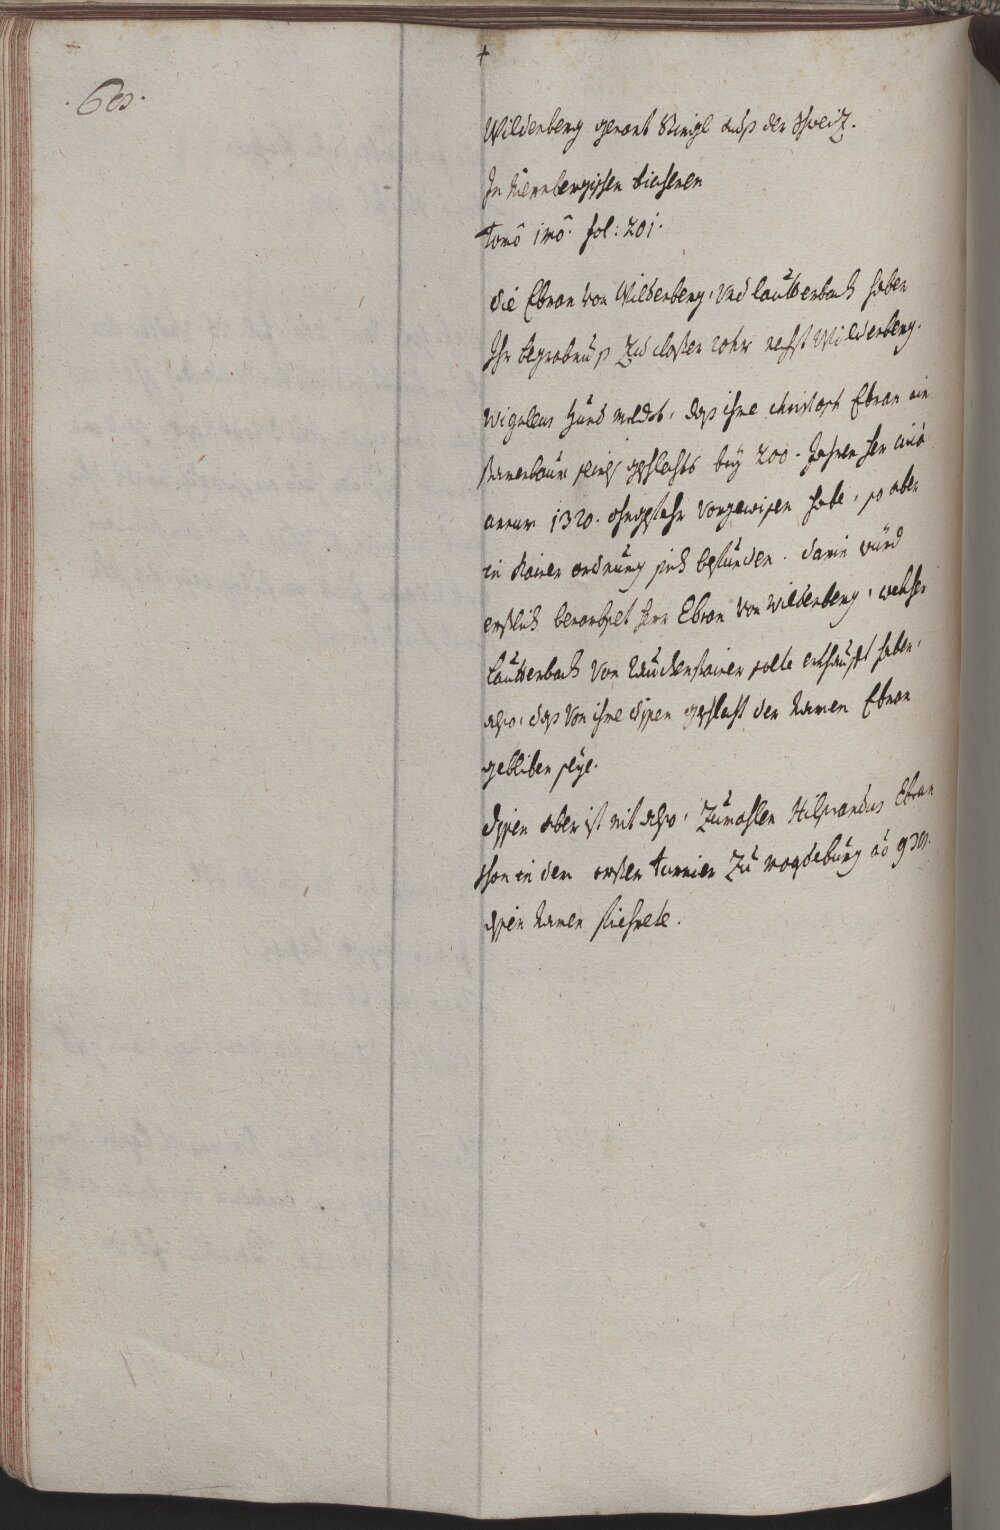 +
Wildenberg genant Ringl auß der Schweitz.
In Nürnbergischen biecheren
tomô imô. fol: 201.
die Ebran von Wildenberg, und lautterbach haben
Ihr begrebnuß Zu closter rohr nechst Wildenberg.
Wiguleus Hund meldet, daß ihme christoph Ebran ein
stamenbaum seines geschlechts bey 200. Jahren her
annum 1320. ohngefehr vorgewisen habe, so aber
in kainer ordnung sich befunden. darin würd
erstlich benambset herr Ebran von Wildenberg, welcher
lautterbach von solte erkaufft haben,
also, daß von ihme disen geschlecht der Namen Ebran
gebliben seye.
disem aber ist nit also, Zumahlen Hilprandus Ebran
schon in dem ersten turnier Zu magdeburg aô 938.
disen Namen fiehrete.